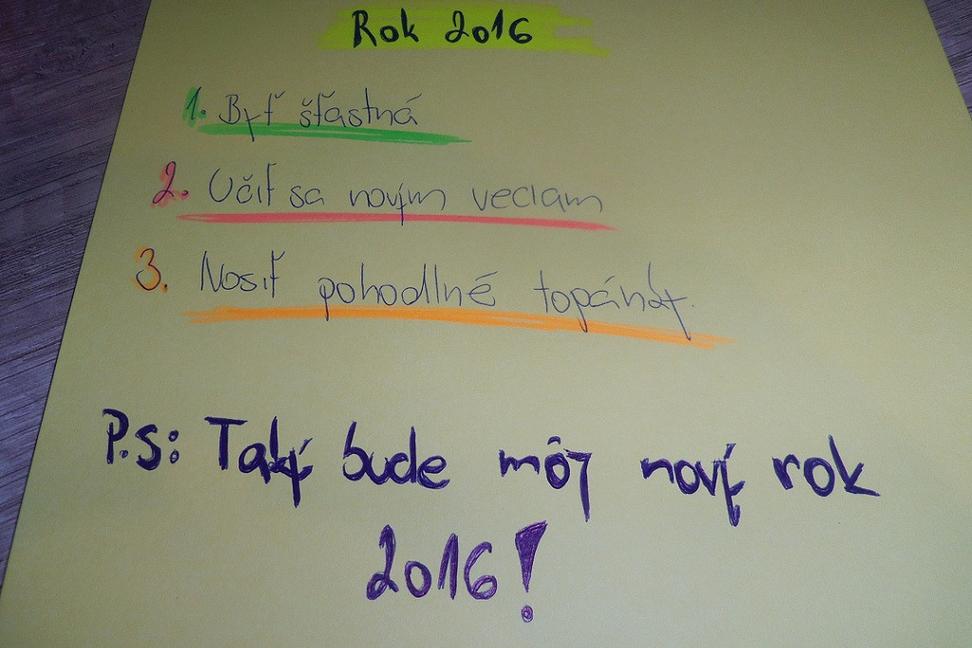 Rok 2016
1. Byť šťastná
2. Učiť sa novým veciam
3. Nosiť pohodlné topánky.
P.S: Taký bude môj nový rok
2016!